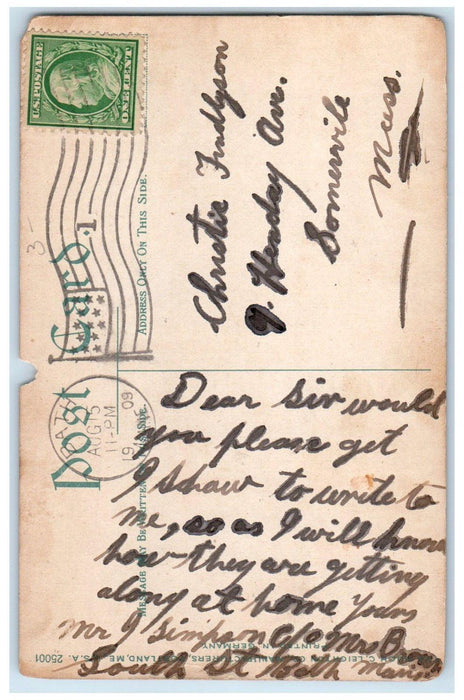 U.S. POSTAGE
ONE CENT
Post Card
ADDRESS ONLY ON THIS SIDE.
MESSAGE MAY BE WRITTEN ON THIS SIDE.
BATH
AUG 5
11-PM
1909
1
3-
Christie Findlyson
9. Henday Ave.
Somervile
Mass.
Dear Sir would
you please get
I shaw to write to
me, so as I will know
how they are getting
along at home Yours
Mr J Simpson C/o Mrs
South St Bath Maine
C. LEIGHTON CO., MANUFACTURERS, PORTLAND, ME., U.S.A.
GERMANY
25001